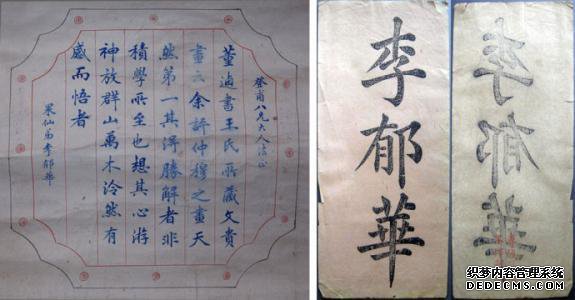 癸甫八兄大人法正
董逌書王氏所藏文貴
畫云余評仲穆之畫天
然第一其得勝解者非
積學所至也想其心游
神放群山萬木泠然有
感而悟者
果仙弟李郁華
李郁華
李郁華
织梦内容管理系统
DEDECMS.COM